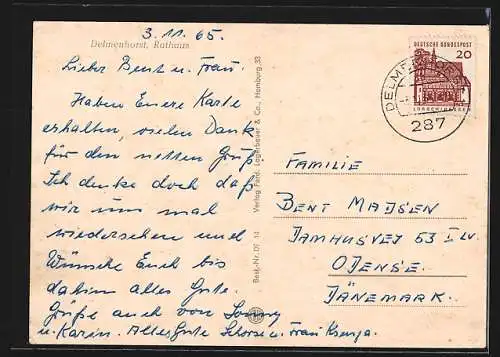 3.11.65.
Delmenhorst, Rathaus
Lieber Bent u. Frau.
Haben Euere Karte
erhalten, vielen Dank
für den netten Grüß
Ich denke doch daß
wir uns mal
wiedersehen und
Wünsche Euch bis
dahin alles Gute.
Grüße auch von
u. Karin. Alles Gute u. Frau
Best.-Nr. Df 14 Verlag Ferd. Lagerbauer & Co., Hamburg 33
DEUTSCHE BUNDESPOST
20
LORSCH/HESSEN
DELME
287
FAMILIE
BENT MADSEN
JAMHUSVEJ 53 I LV.
ODENSE.
DÄNEMARK.